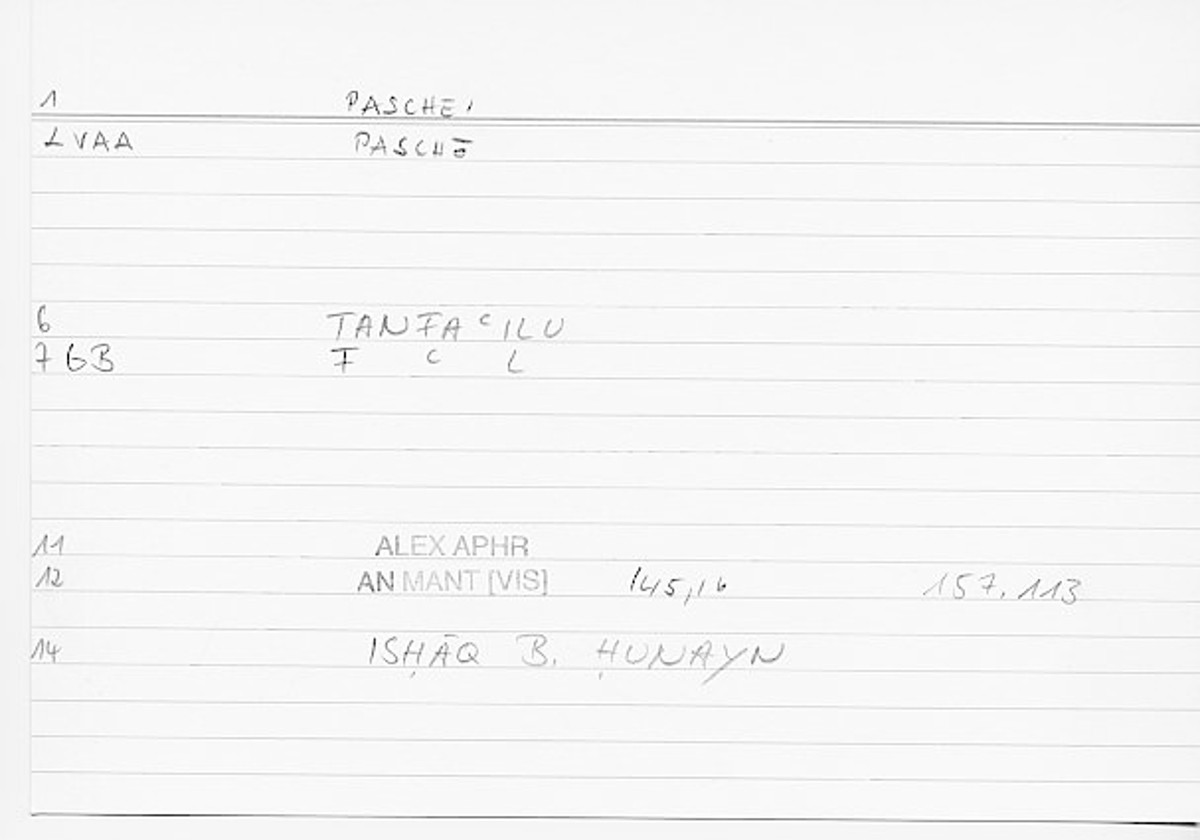 1 PASCHEI
LVAA PASCHŌ
6 TANFAᶜILU
7 GB F ᶜ L
11 ALEX APHR
12 AN MANT [VIS] 145,16 157.113
14 ISḤĀQ B. ḤUNAYN